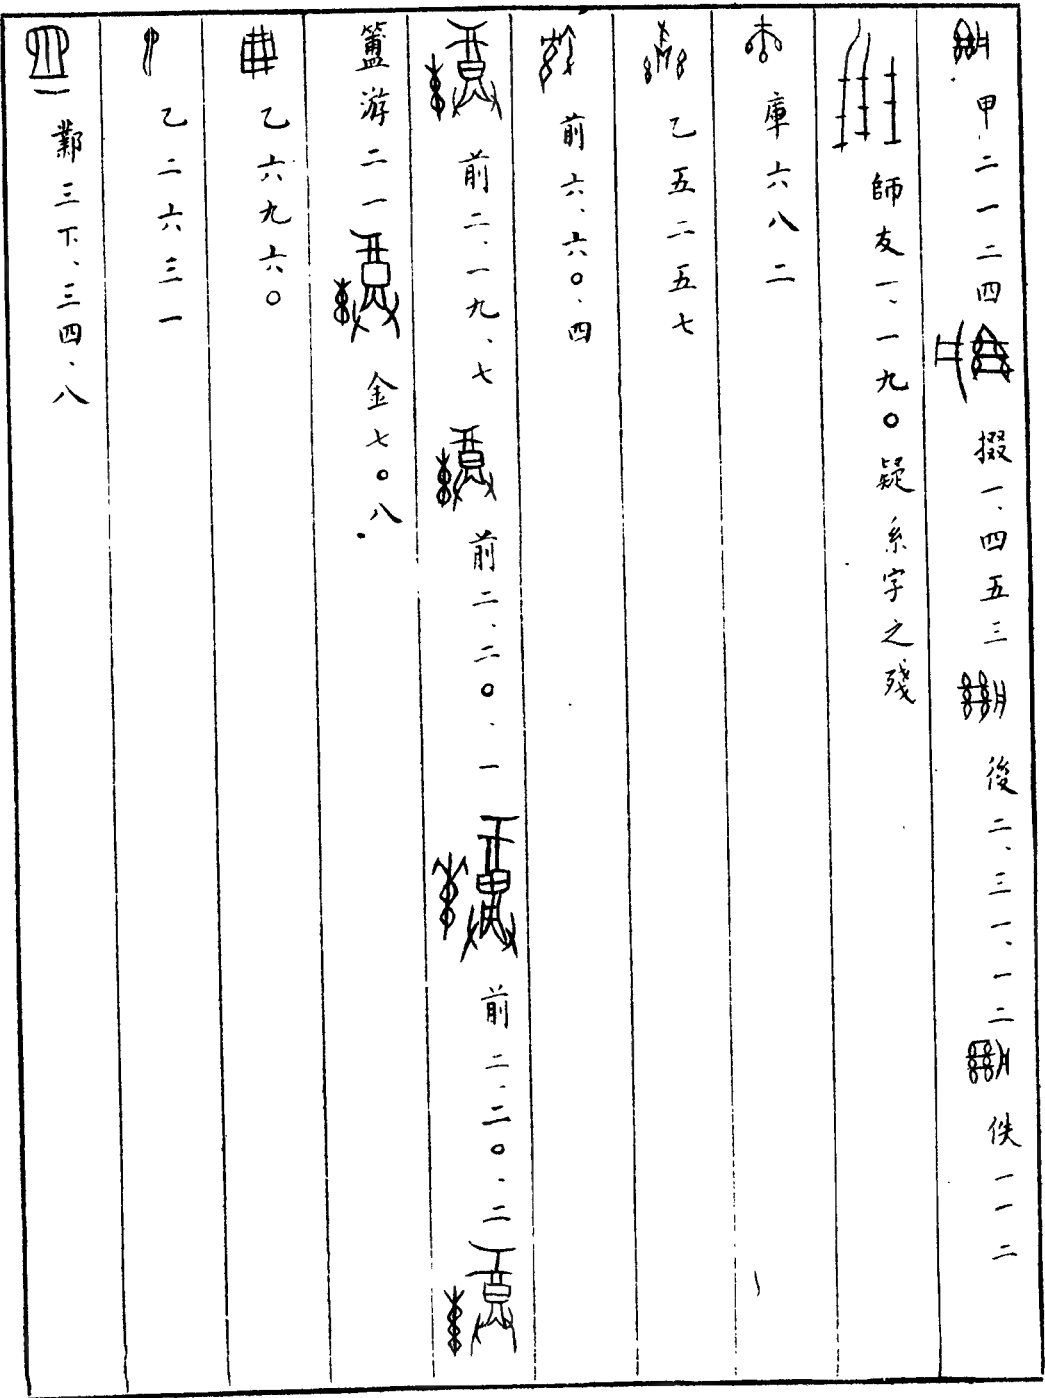 甲二一二四 掇一、四五三 後二、三一、一二 佚一一二
師友一、一九〇疑系字之殘
庫六八二
乙五二五七
前六、六〇、四
前二、一九、七 前二、二〇、一 前二、二〇、二
簠游二一 金七〇八
乙六九六〇
乙二六三一
鄴三下、三四、八